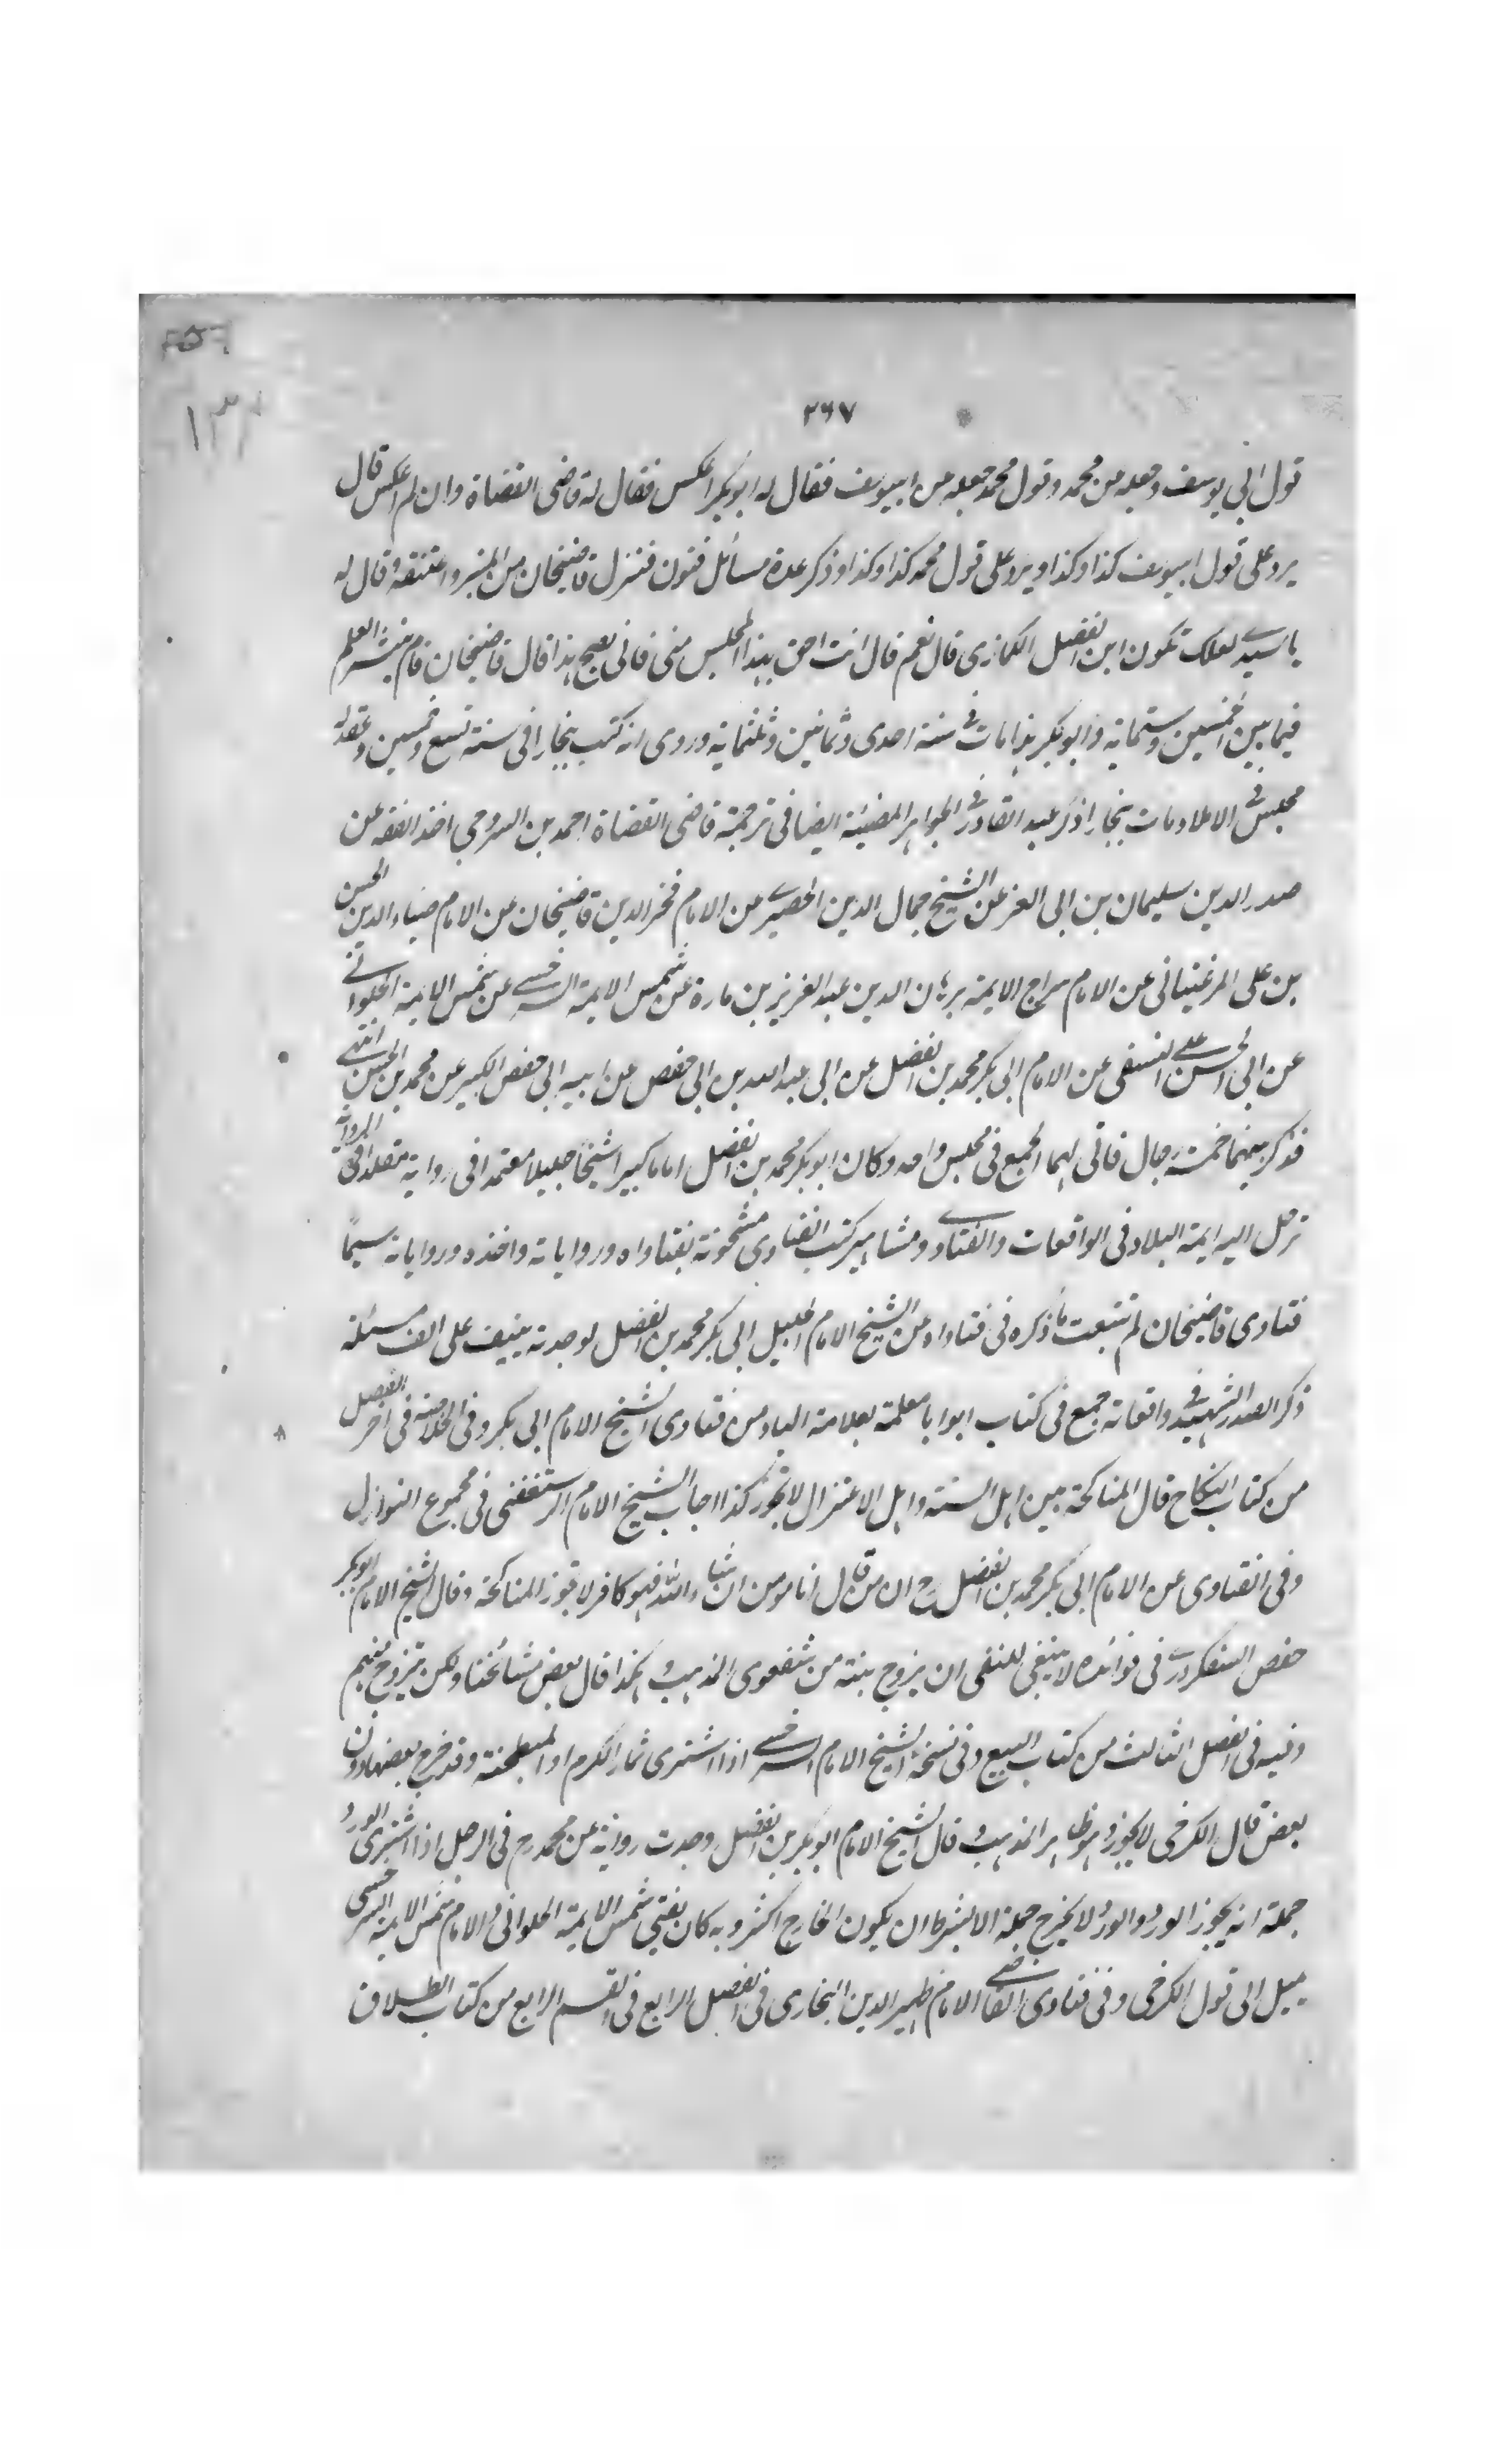 ٢٦٧
قول ابي يوسف وجعله من محمد وقول محمد جعله من ابيوسف فقال له ابو بكر اعكس فقال له قاضي القضاة وان لم اعكس قال
يرد على قول ابيوسف كذا وكذا ويرد على قول محمد كذا وكذا وذكر عدة مسائل فنون فنزل قاضيخان من المنبر واعتنقه وقال له
يا سيدے لعلك تكون ابن الفضل الكمازى قال نعم قال انت احق بهذا المجلس منى فانى يصح هذا قال قاضيخان قام بنشر العلم
فيما بين خمسين وستماية وابو بكر هذا مات في سنة احدى وثمانين وثلثماية وروى انه كتب ببخارا في سنة تسع وخمسين وعقد له
مجلس في الاملاء ومات ببخارا ذكر عبد القادر في الجواهر المضيئة ايضا في ترجمة قاضى القضاة احمد بن السروجي اخذ الفقه عن
صدر الدين سليمان بن ابى العز عن الشيخ جمال الدين الحصيرے عن الامام فخر الدين قاضيخان عن الامام ضياء الدين الحسن
بن على المرغينانى عن الامام سراج الايمة برهان الدين عبد العزيز بن مازه عن شمس الايمة السرخسے عن شمس الايمة الحلوانے
عن ابى الحسن علے النسفى عن الامام ابى بكر محمد بن الفضل عن ابى عبد الله بن ابى حفص عن ابيه ابى حفص الكبير عن محمد بن الحسن انتهے
فذكر بينهما خمسة رجال فانى لهما الجمع في مجلس واحد وكان ابو بكر محمد بن الفضل اماما كبيرا شيخا جليلا معتمدا فى رواية مقلدا فى الدراية
ترحل اليه ايمة البلاد فى الواقعات والفتاوے ومشاهير كتب الفتاوى مشحونة بفتاواه ورواياته واخذه ورواياته سيما
فتاوى قاضيخان لم تتبعت ما ذكره فى فتاواه من الشيخ الامام الجليل ابى بكر محمد بن الفضل لوجدته ينيف على الف مسئلة
ذكر الصدر الشهيد فى واقعاته جمع فى كتاب ابوابا معلمة بعلامة الباء من فتاوى الشيخ الامام ابى بكر وفى الخلاصة فى اخر الفصل
من كتاب النكاح قال المناكحة بين اهل السنة واهل الاعتزال لا تجوز كذا اجاب الشيخ الامام الرستغفنى فى مجموع النوازل
وفى الفتاوى عن الامام ابى بكر محمد بن الفضل رح ان من قال انا مومن ان شاء الله فهو كافر لا تجوز المناكحة وقال الشيخ الامام ابو بكر
حفص السفكردرے فى فوائده لا ينبغى للحنفى ان يزوج بنته من شفعوى المذهب وهكذا قال بعض مشائخنا ولكن يتزوج منهم
وفيه فى الفصل الثالث من كتاب البيع وفى نسخة الشيخ الامام السرخسے اذا اشترى ثمار الكرم او المبطخة وقد خرج بعضها دون
بعض قال الكرخى لا يجوز وهو ظاهر المذهب وقال الشيخ الامام ابو بكر بن الفضل وجدت رواية عن محمد رح فى الرجل اذا اشترى الورد
جملة انه يجوز الورد والورد لا يخرج جملة الا بشرط ان يكون الخارج اكثر وبه كان يفتى شمس الايمة الحلوانى والامام شمس الايمة السرخسى
يميل الى قول الكرخى وفى فتاوى القاضے الامام ظهير الدين البخارى فى الفصل الرابع فى القسم الرابع من كتاب الطلاق